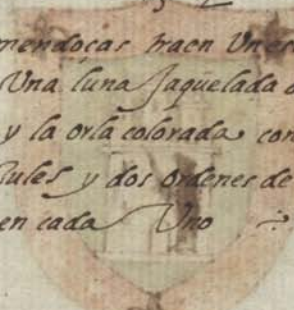 mendoças traen Un es
Una luna Jaquelada d
y la orla colorada con
Rules y dos ordenes de
en cada Uno